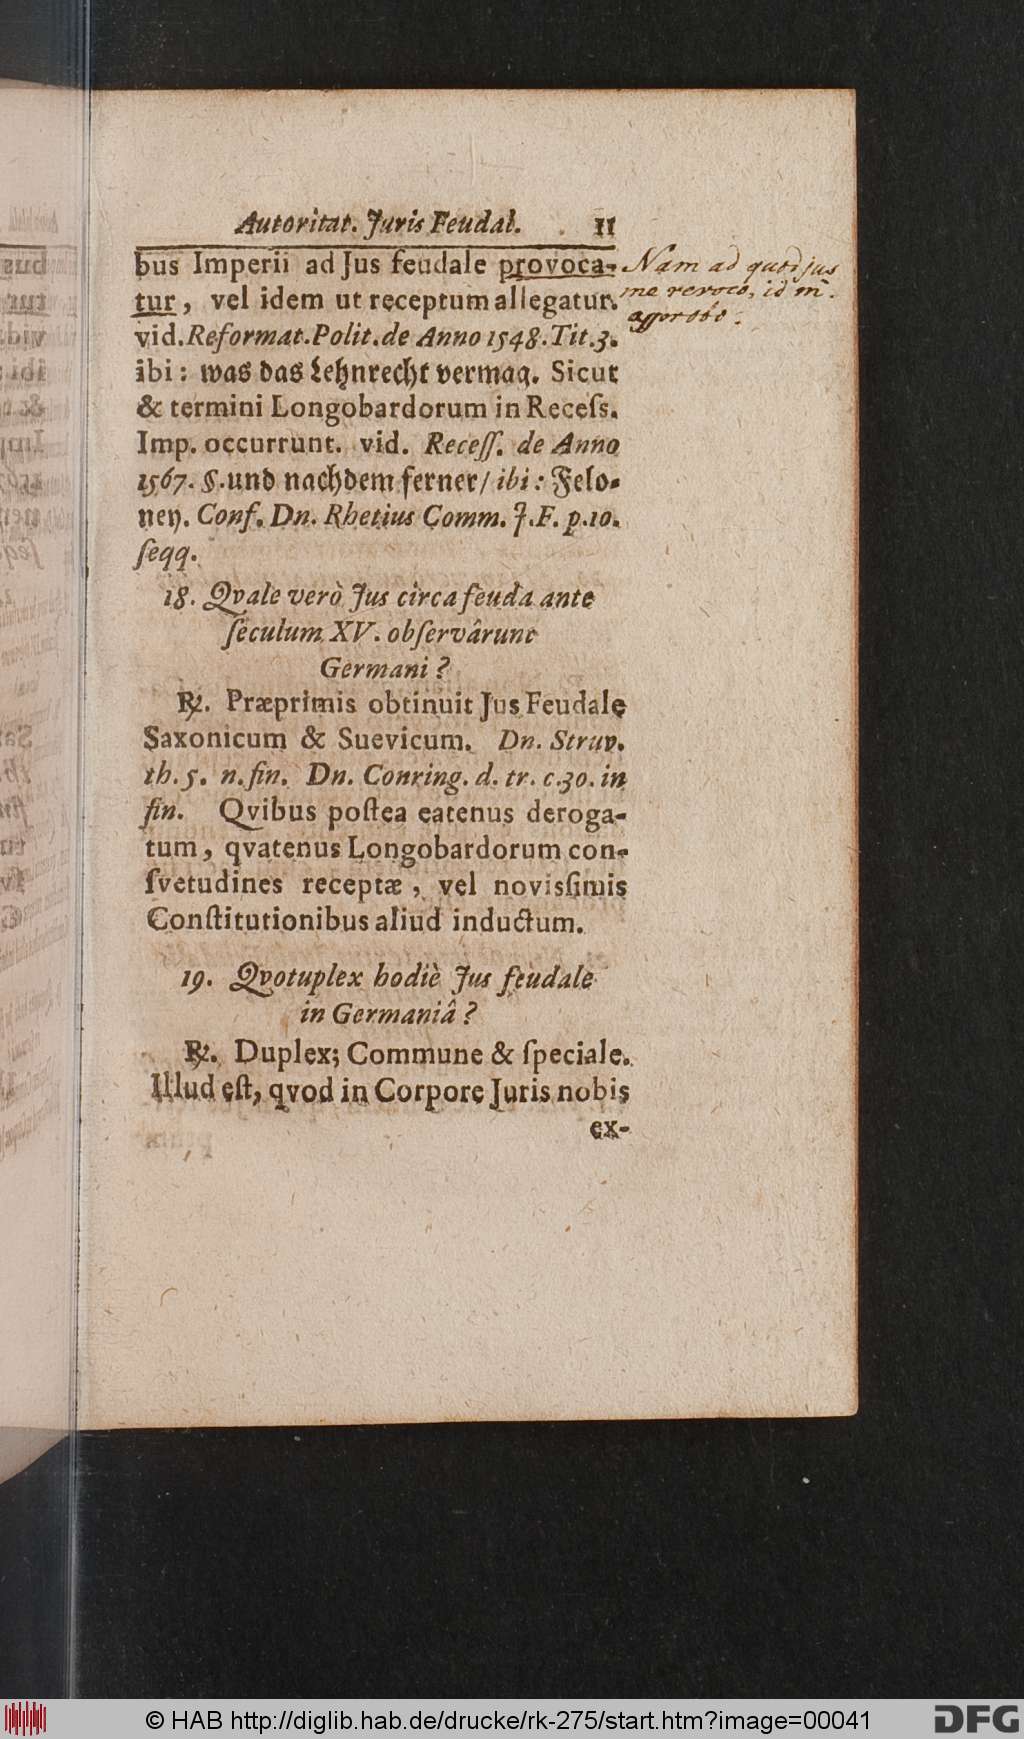 Autoritat. Juris Feudal. 11
bus Imperii ad Jus feudale provoca-
tur, vel idem ut receptum allegatur.
vid. Reformat. Polit. de Anno 1548. Tit. 3.
ibi: was das Lehnrecht vermag. Sicut
& termini Longobardorum in Recess.
Imp. occurrunt. vid. Recess. de Anno
1567. §. und nachdem ferner/ ibi: Felo-
ney. Conf. Dn. Rhetius Comm. J. F. p. 10.
seqq.
Nam ad quod jus
me revoco, id
approbo.
18. Qvale verò Jus circa feuda ante
seculum XV. observârunt
Germani?
℞. Præprimis obtinuit Jus Feudale
Saxonicum & Suevicum. Dn. Struv.
th. 5. n. fin. Dn. Conring. d. tr. c. 30. in
fin. Qvibus postea eatenus deroga-
tum, qvatenus Longobardorum con-
svetudines receptæ, vel novissimis
Constitutionibus aliud inductum.
19. Qvotuplex hodiè Jus feudale
in Germaniâ?
℞. Duplex; Commune & speciale.
Illud est, qvod in Corpore Juris nobis
ex-
© HAB http://diglib.hab.de/drucke/rk-275/start.htm?image=00041
DFG